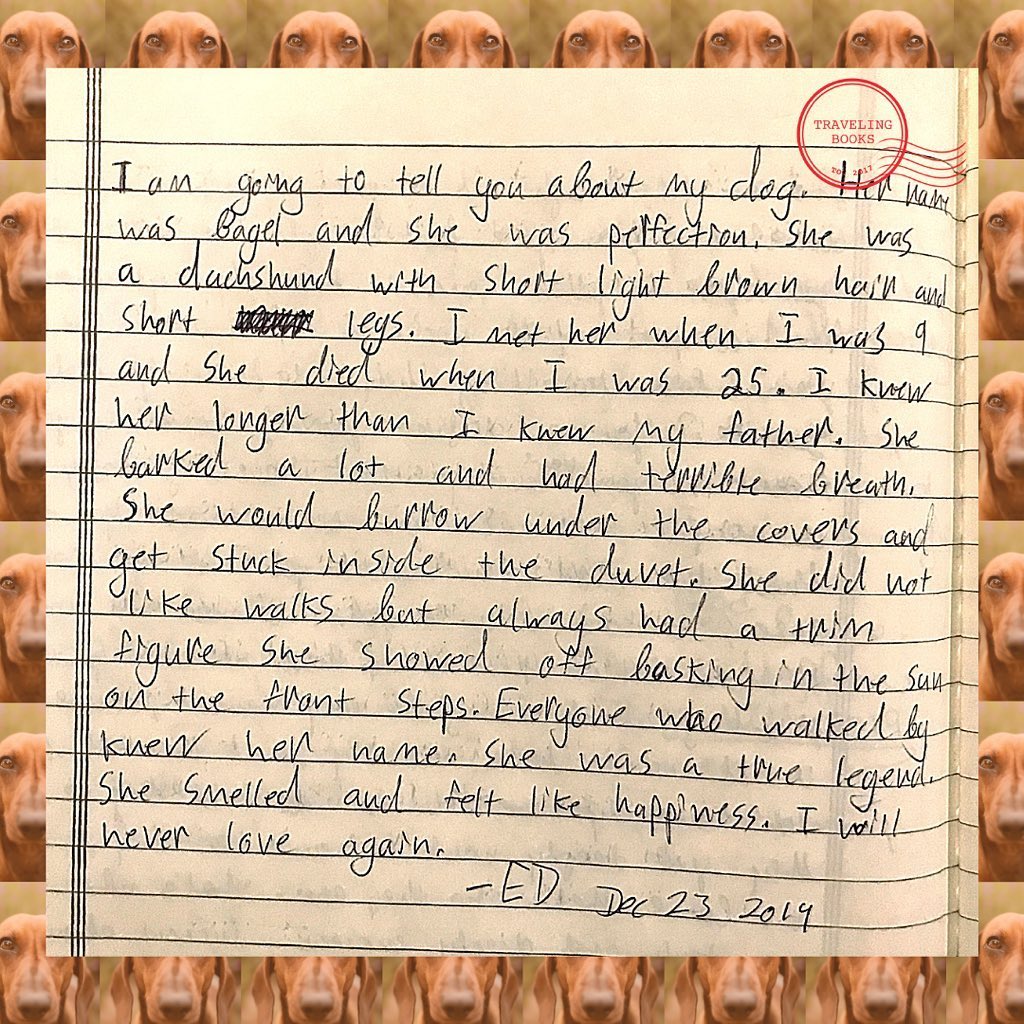 TRAVELING
BOOKS
2017
I am going to tell you about my dog. Her name
was Bagel and she was perfection. She was
a dachshund with short light brown hair and
short legs. I met her when I was 9
and she died when I was 25. I knew
her longer than I knew my father. She
barked a lot and had terrible breath.
She would burrow under the covers and
get stuck inside the duvet. She did not
like walks but always had a trim
figure she showed off basking in the sun
on the front steps. Everyone who walked by
knew her name. She was a true legend.
She smelled and felt like happiness. I will
never love again.
-ED Dec 23 2019